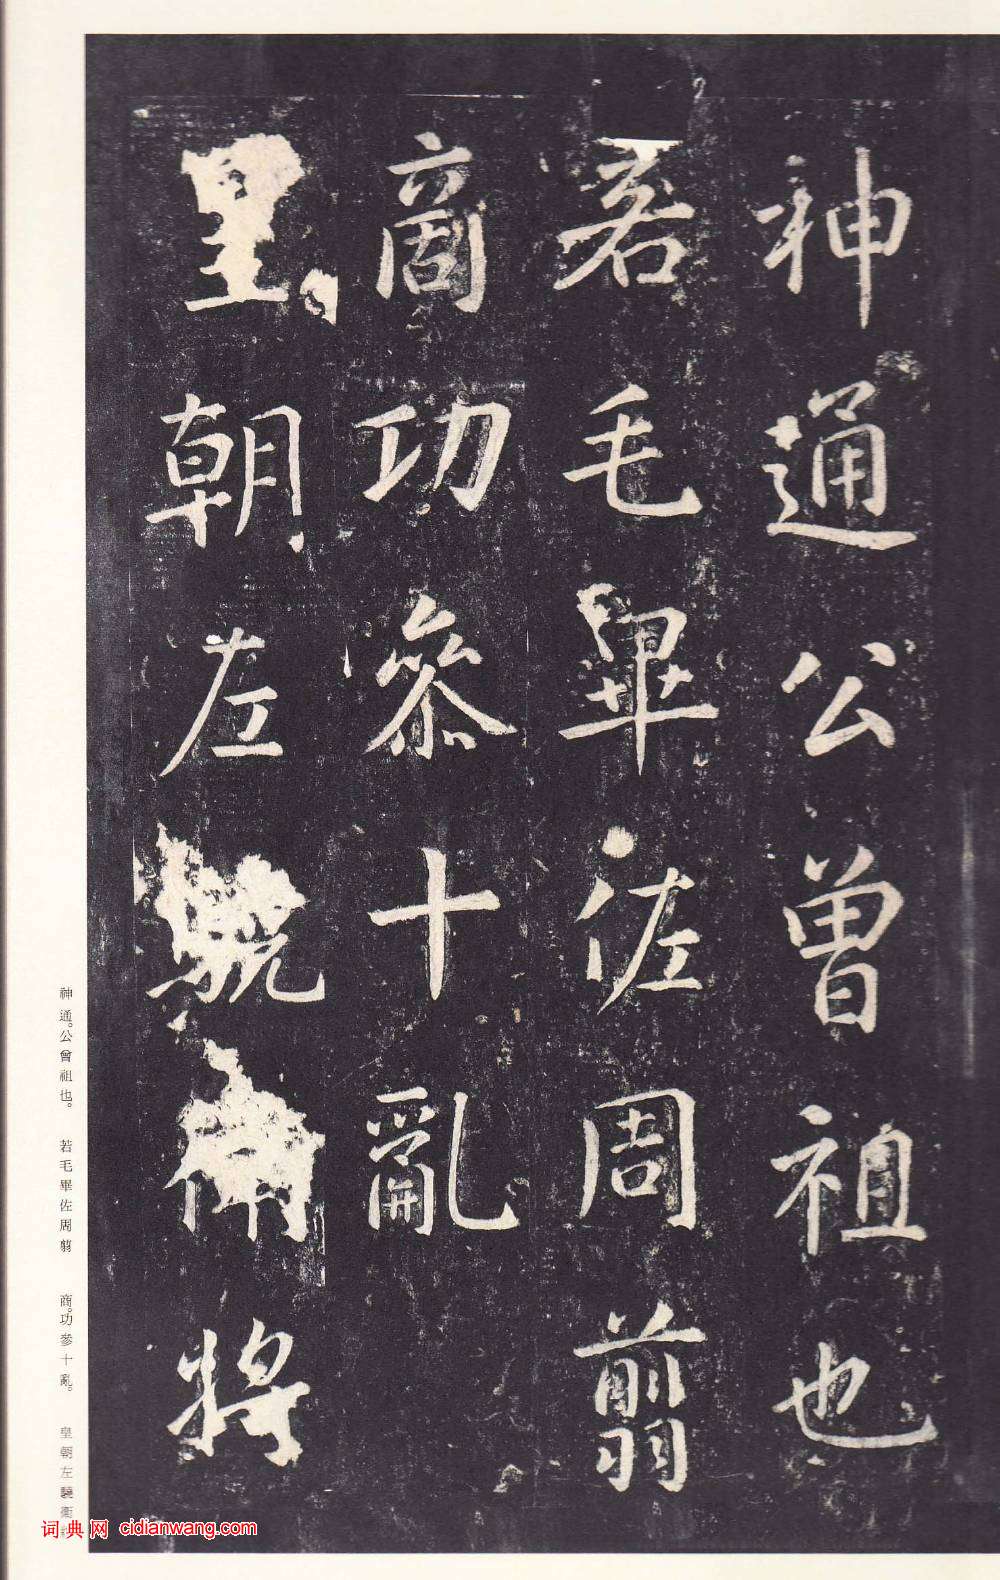 神通公曾祖也
若毛畢佐周翦
商功參十亂
皇朝左驍衛將
神通。公曾祖也。 若毛畢佐周翦 商。功參十亂。 皇朝左驍衛將
词典网 cidianwang.com